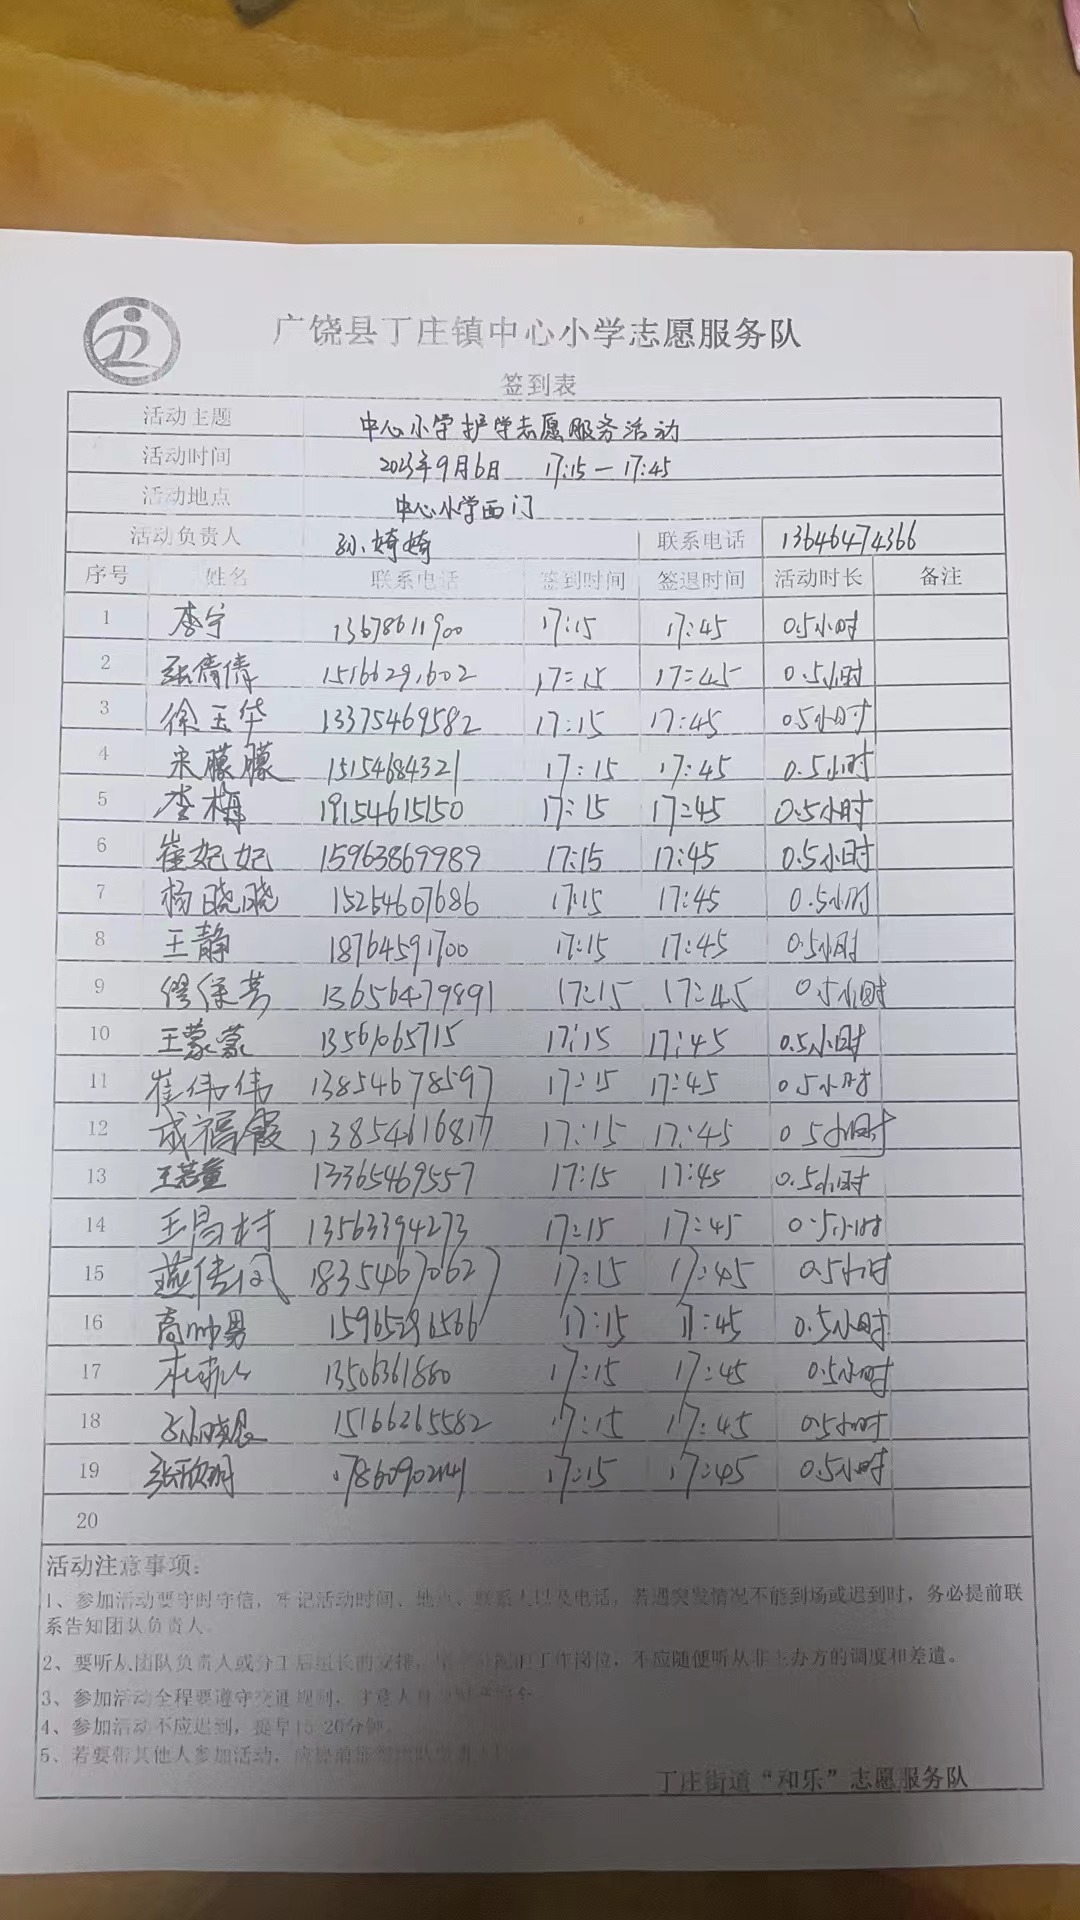 广饶县丁庄镇中心小学志愿服务队
签到表
活动主题 中心小学护学志愿服务活动
活动时间 2023年9月6日 17:15—17:45
活动地点 中心小学西门
活动负责人 孙婍婍 联系电话 13646474366
序号 姓名 联系电话 签到时间 签退时间 活动时长 备注
1 李宁 13678611900 17:15 17:45 0.5小时
2 张倩倩 15166291602 17:15 17:45 0.5小时
3 徐玉华 13375469582 17:15 17:45 0.5小时
4 宋朦朦 15154684321 17:15 17:45 0.5小时
5 李梅 19154615150 17:15 17:45 0.5小时
6 崔妃妃 15963869989 17:15 17:45 0.5小时
7 杨晓晓 15254607686 17:15 17:45 0.5小时
8 王静 18764591700 17:15 17:45 0.5小时
9 缪保芳 13656479891 17:15 17:45 0.5小时
10 王蒙蒙 13561065715 17:15 17:45 0.5小时
11 崔伟伟 13854678597 17:15 17:45 0.5小时
12 成福霞 13854616817 17:15 17:45 0.5小时
13 王若童 13365469557 17:15 17:45 0.5小时
14 王昌村 13563394273 17:15 17:45 0.5小时
15 燕传凤 18354670627 17:15 17:45 0.5小时
16 高帅男 15965296566 17:15 17:45 0.5小时
17 13506361880 17:15 17:45 0.5小时
18 15166265582 17:15 17:45 0.5小时
19 张欣明 17:15 17:45 0.5小时
20
活动注意事项：
1、参加活动要守时守信，牢记活动时间、地点、联系人以及电话，若遇突发情况不能到场或迟到时，务必提前联
系告知团队负责人。
2、要听从团队负责人或分工后组长的安排，工作岗位，不应随便听从非主办方的调度和差遣。
3、参加活动全程要遵守交通规则，注意人身
4、参加活动不应迟到，提早15-20分钟。
5、若要带其他人参加活动，应提前
丁庄街道“和乐”志愿服务队